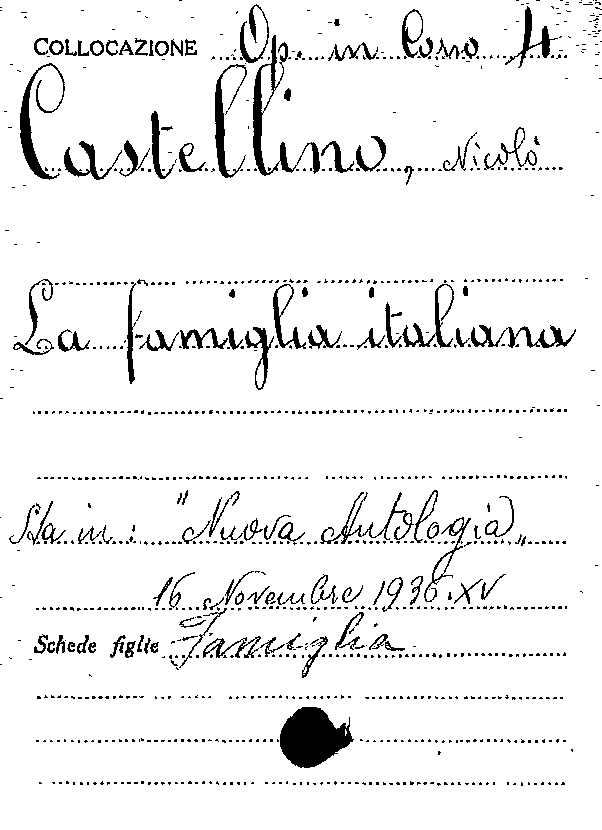 COLLOCAZIONE Op. in Corso 4
Castellino, Nicolò
La famiglia italiana
Sta in: "Nuova Antologia„
16 Novembre 1936. XV
Schede figlie Famiglia